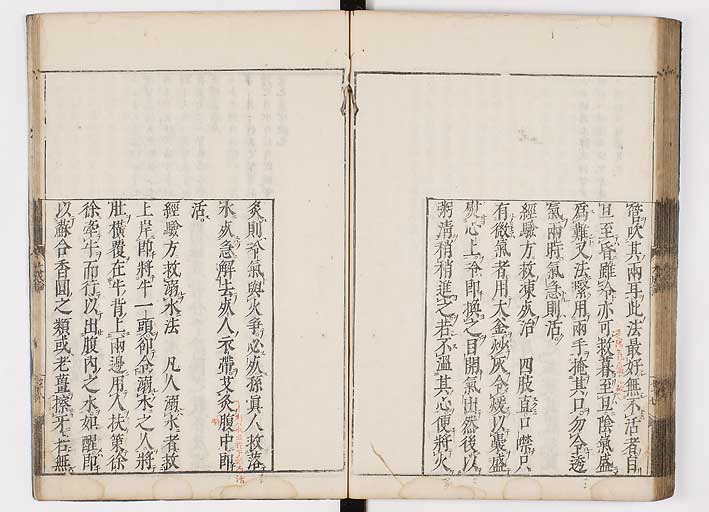 管吹其兩耳此法最好無不活者自
旦至昏雖冷亦可救暮至旦陰氣盛
爲難又法緊用兩手掩其口勿令透
氣兩時氣急則活
經驗方救凍死法 四肢直口噤只
有微氣者用大釜炒灰令煖以囊盛
熨心上冷即換之目開氣出然後以
粥清稍稍進之若不溫其心便將火
炙則冷氣與火爭必死孫眞人救落
水死急解去死人衣帶艾灸臍中即
活
經驗方救溺水法 凡人溺水者救
上岸即將牛一頭却令溺水之人將
肚橫覆在牛背上兩邊用人扶策徐
徐牽牛而行以出腹內之水如醒即
以蘇合香圓之類或老薑擦牙若無